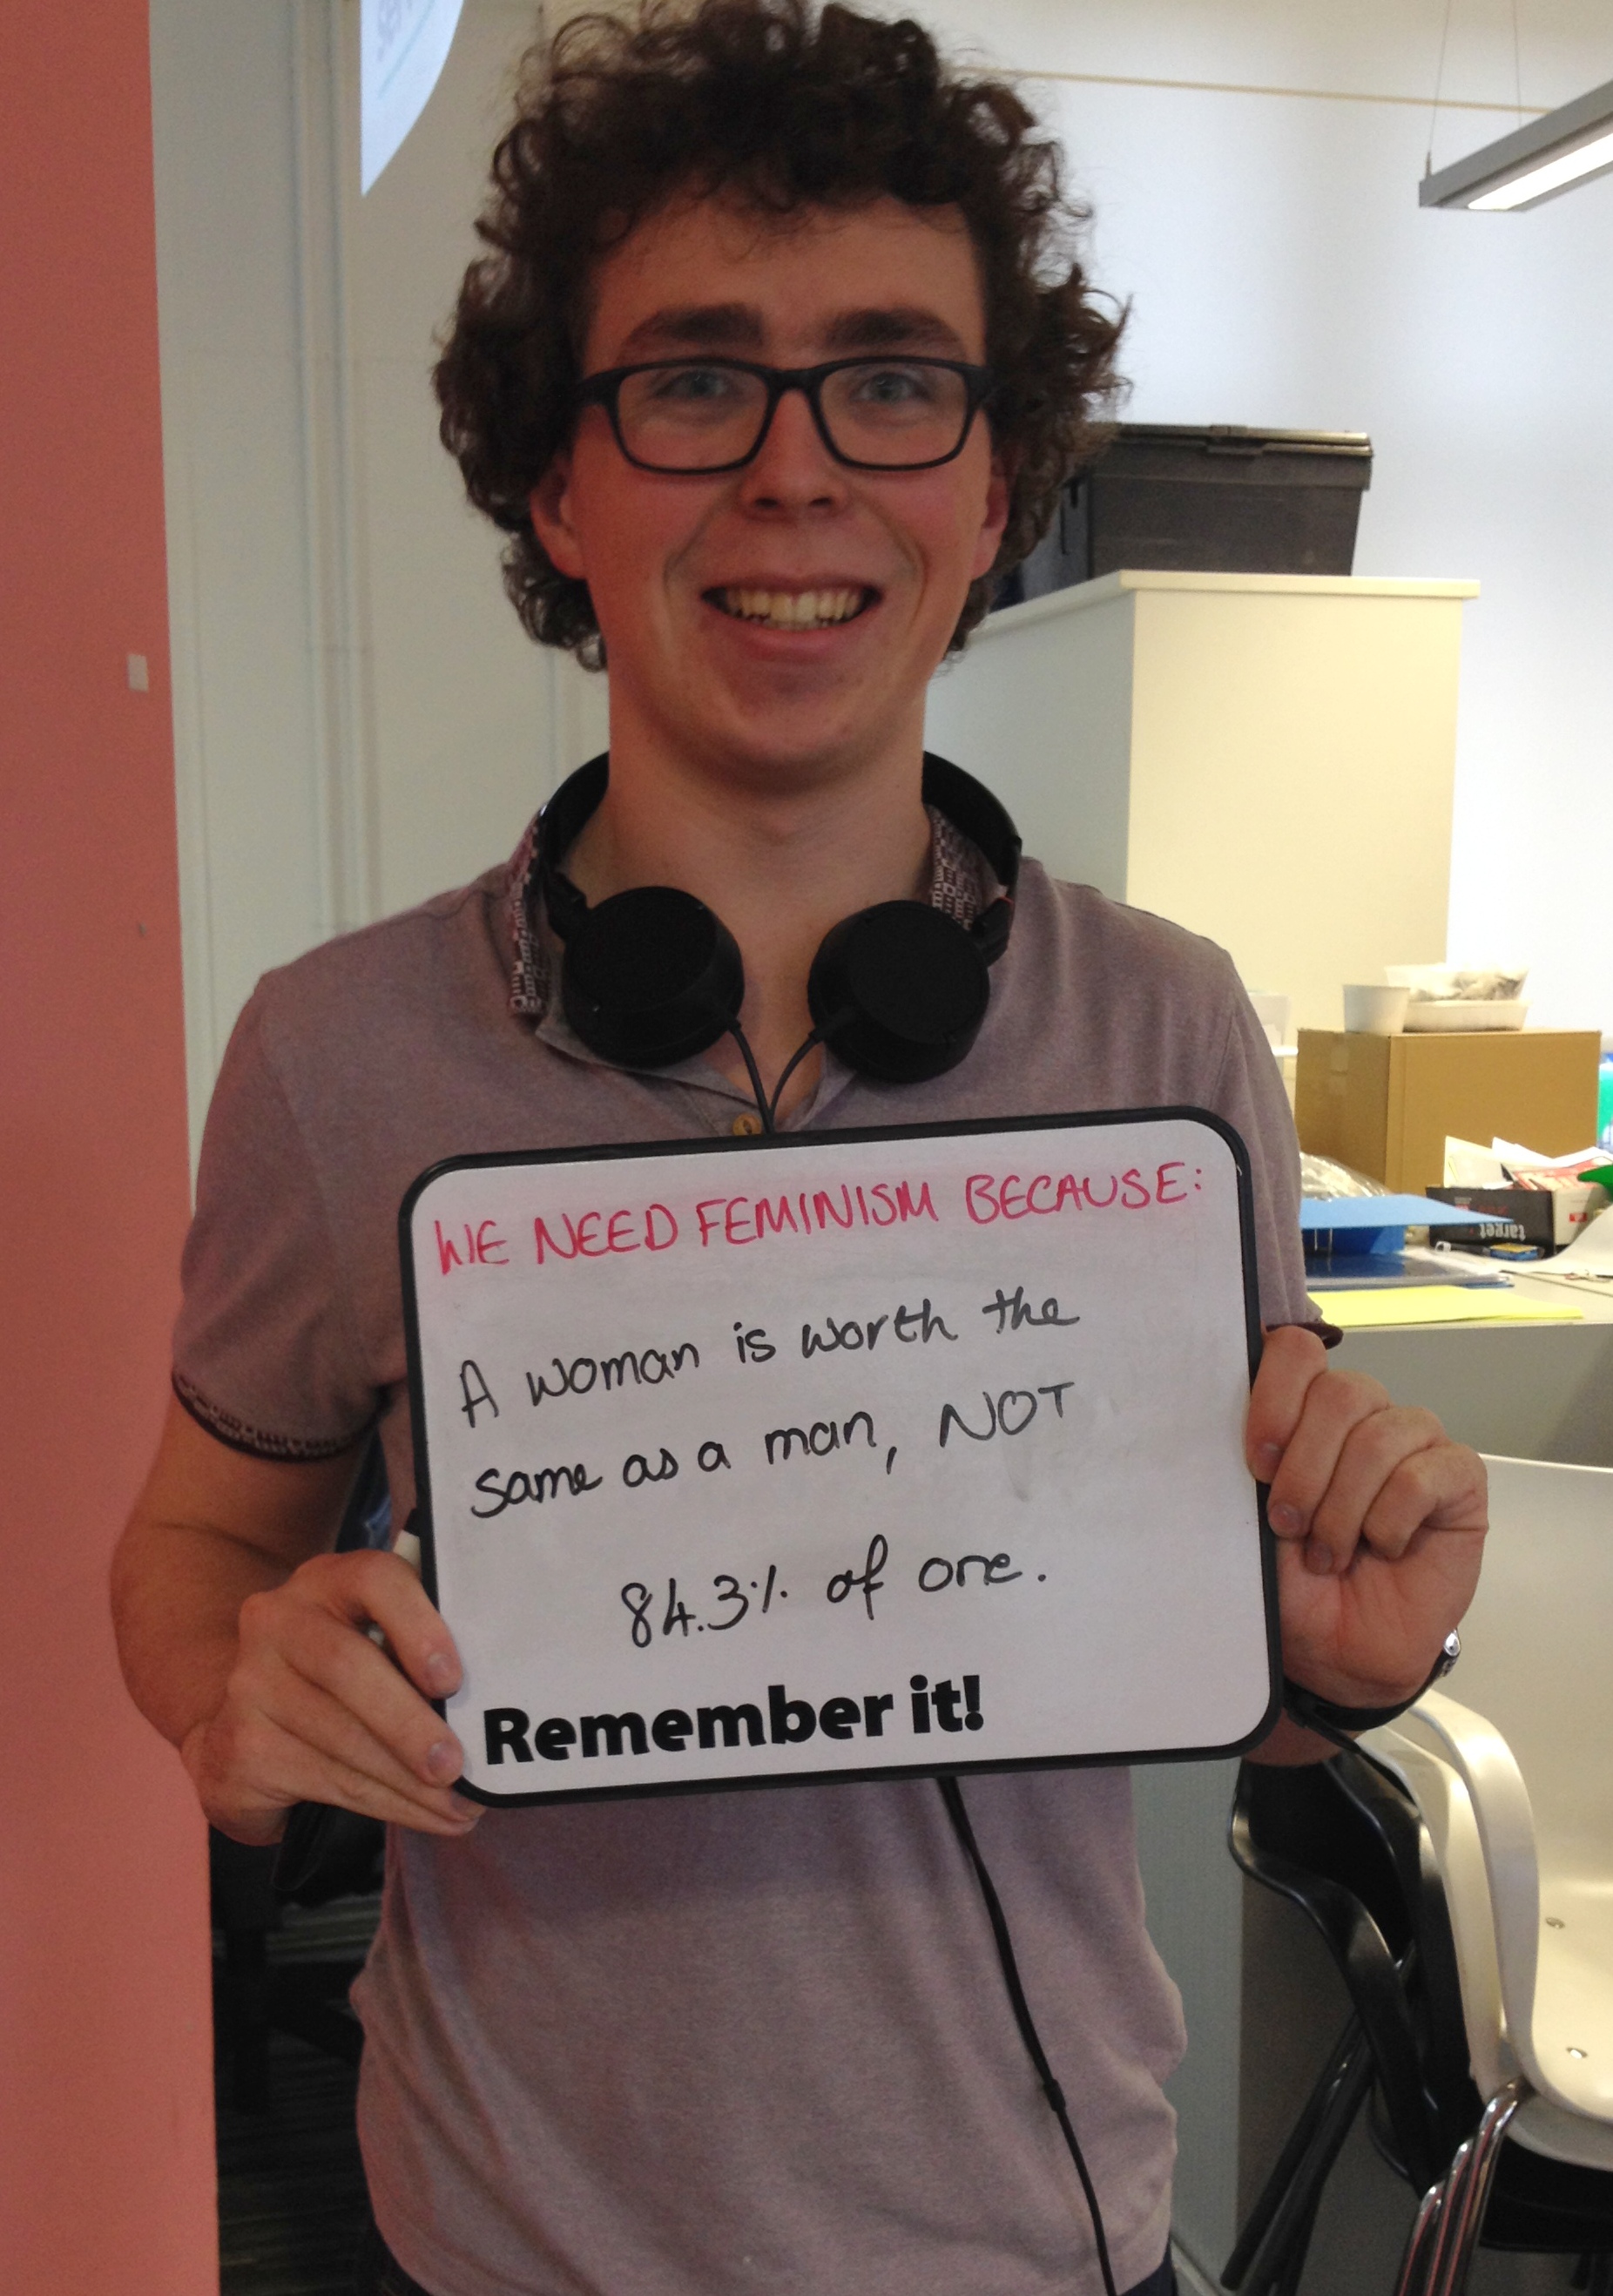 WE NEED FEMINISM BECAUSE:
A woman is worth the
same as a man, NOT
84.3% of one.
Remember it!
target